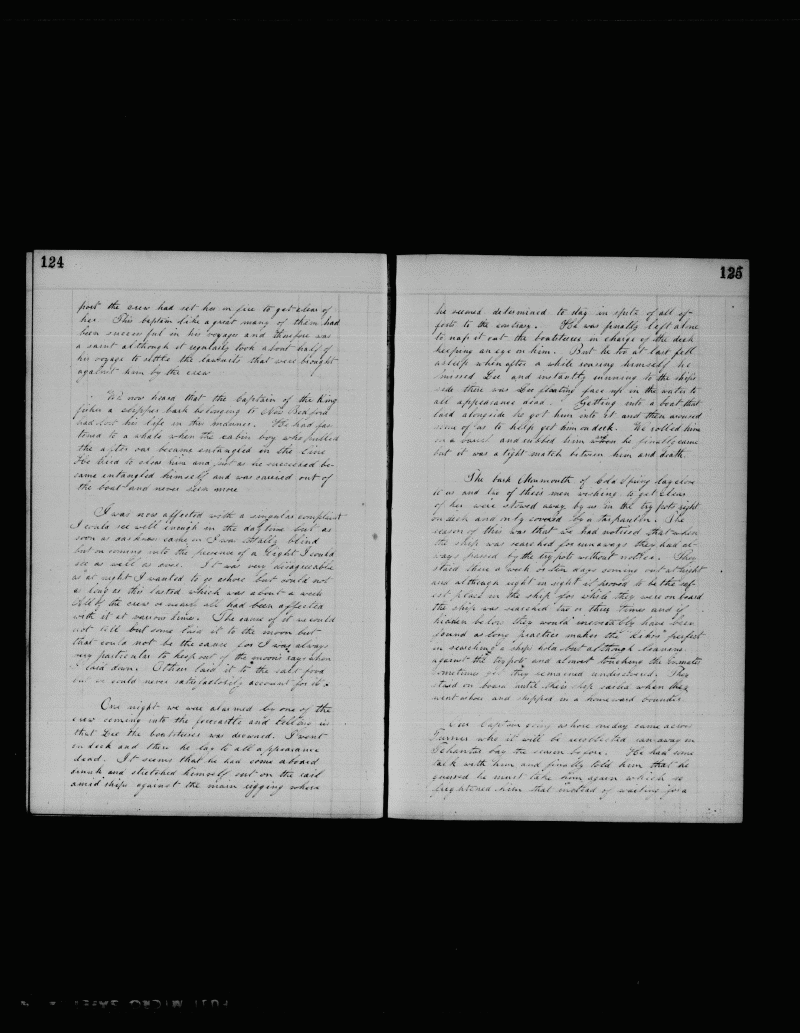 124
port the crew had set her on fire to get clear of
her. This Captain like a great many of them had
been successful in his voyages and therefore was
a saint although it regularly took about half of
his voyage to settle the lawsuits that were brought
against him by the crew
We now heard that the Captain of the King
fisher a clipper bark belonging to New Bedford
had lost his life in this manner. He had fas
tened to a whale when the cabin boy who pulled
the after oar became entangled in the line
He tried to clear him and just as he succeeded be-
came entangled himself and was carried out of
the boat and never seen more
I was now affected with a singular complaint
I could see well enough in the day time but as
soon as darkness came on I was totally blind
but on coming into the presence of a light I could
see as well as ever. It was very disagreeable
as at night I wanted to go ashore but could not
as long as this lasted which was about a week
All of the crew or nearly all had been affected
with it at various times. The cause of it we could
not tell but some laid it to the moon but
that could not be the cause for I was always
very particular to keep out of the moon's rays when
I laid down. Others laid it to the salt food
but we could never satisfactorily account for it.
One night we were alarmed by one of the
crew coming into the forecastle and telling us
that Lee the boatsteerer was drowned. I went
on deck and there he lay to all appearance
dead. It seems that he had come aboard
drunk and stretched himself out on the rail
amidships against the main rigging where
125
he seemed determined to stay in spite of all ef-
forts to the contrary. He was finally left alone
to nap it out the boatsteerer in charge of the deck
keeping an eye on him. But he too at last fell
asleep when after a while rousing himself he
missed Lee and instantly running to the ships
side there was Lee floating face up in the water to
all appearance dead. Getting into a boat that
laid alongside he got him into it and then aroused
some of us to help get him on deck. We rolled him
on a barrel and rubbed him when he finally came
but it was a tight match between him and death
The bark Monmouth of Cold Spring lay close
to us and two of their men wishing to get clear
of her were stowed away by us in the try pots right
on deck and only covered by a tarpaulin. The
reason of this was that we had noticed that when
the ship was searched for runaways they had al-
ways passed by the try pots without notice. They
staid there a week or ten days coming out at night
and although right in sight it proved to be the saf-
est place in the ship for while they were on board
the ship was searched two or three times and if
hidden below they would inevitably have been
found as long practice makes the perfect
in searching a ships hold but although leaning
against the try pots and almost touching the inmates
sometimes yet they remained undiscovered. They
staid on board until their ship sailed when they
went ashore and shipped in a homeward bounder
Our Captain being ashore one day came across
Turner who it will be recollected ran away in
Shantar bay the season before. He had some
talk with him and finally told him that he
guessed he must take him again which so
frightened him that instead of waiting for a